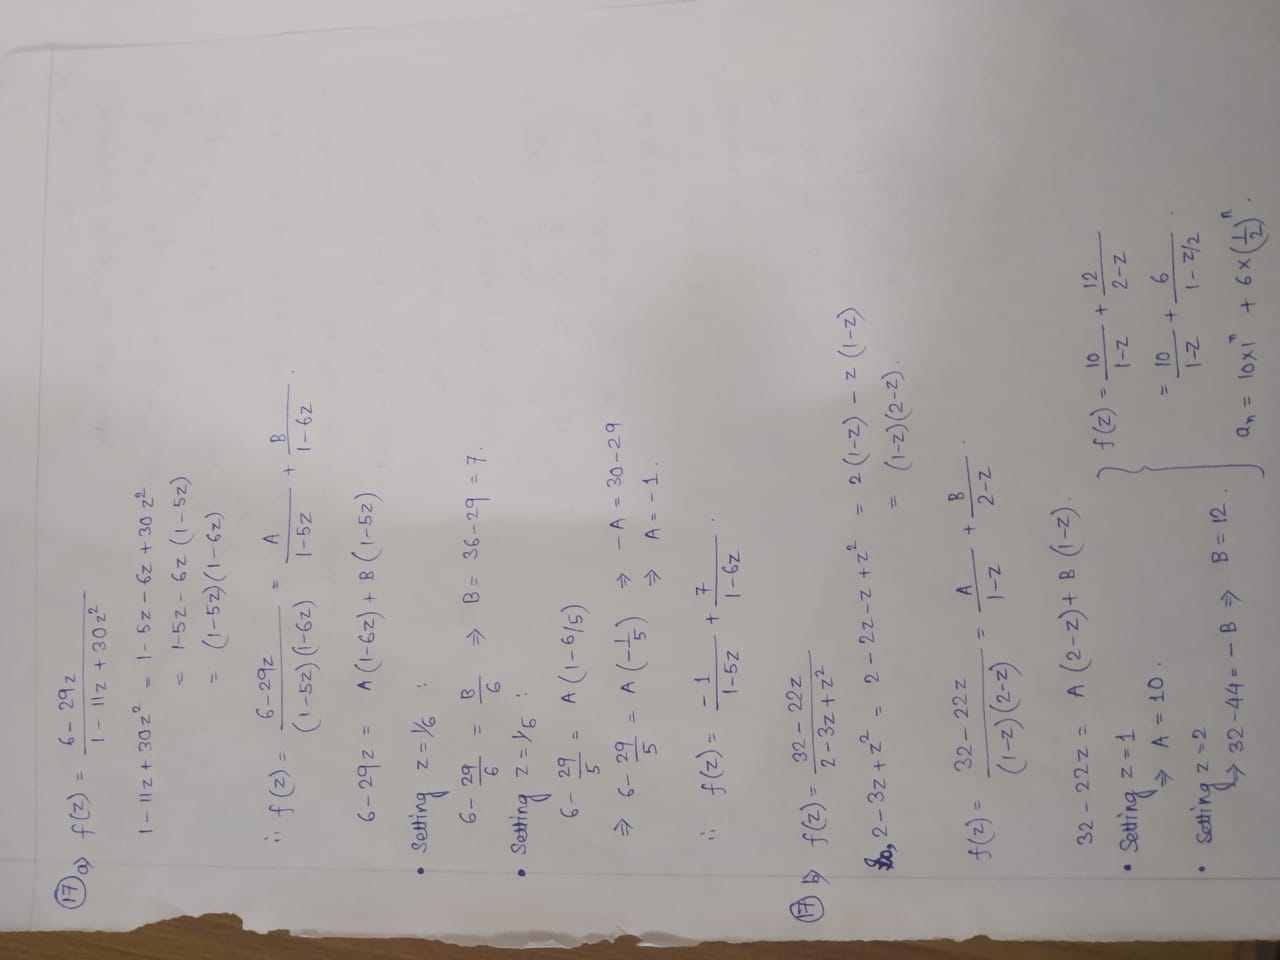 17 a) f(z) = (6 - 29z)/(1 - 11z + 30z²)
1 - 11z + 30z² = 1 - 5z - 6z + 30z²
= 1 - 5z - 6z (1 - 5z)
= (1 - 5z)(1 - 6z)
∴ f(z) = (6 - 29z)/((1 - 5z)(1 - 6z)) = A/(1 - 5z) + B/(1 - 6z).
6 - 29z = A(1 - 6z) + B(1 - 5z)
• Setting z = 1/6 :
6 - 29/6 = B/6 ⇒ B = 36 - 29 = 7.
• Setting z = 1/5 :
6 - 29/5 = A(1 - 6/5)
⇒ 6 - 29/5 = A(-1/5) ⇒ -A = 30 - 29
⇒ A = -1.
∴ f(z) = -1/(1 - 5z) + 7/(1 - 6z).
17 b) f(z) = (32 - 22z)/(2 - 3z + z²)
So, 2 - 3z + z² = 2 - 2z - z + z² = 2(1 - z) - z(1 - z)
= (1 - z)(2 - z).
f(z) = (32 - 22z)/((1 - z)(2 - z)) = A/(1 - z) + B/(2 - z).
32 - 22z = A(2 - z) + B(1 - z).
• Setting z = 1
⇒ A = 10.
• Setting z = 2
⇒ 32 - 44 = -B ⇒ B = 12.
f(z) = 10/(1 - z) + 12/(2 - z)
= 10/(1 - z) + 6/(1 - z/2).
aₙ = 10×1ⁿ + 6×(1/2)ⁿ.